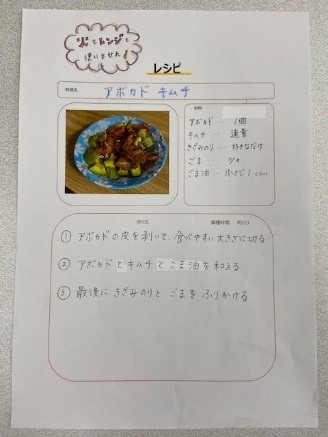 火もレンジも
使いません!
レシピ
料理名
アボカド キムチ
材料
アボカド … 1個
キムチ … 適量
きざみのり … 好きなだけ
ごま … 少々
ごま油 … 小さじ1くらい
作り方
調理時間 約5分
① アボカドの皮を剥いで、食べやすい大きさに切る
② アボカドとキムチとごま油を和える
③ 最後にきざみのりと ごまをふりかける